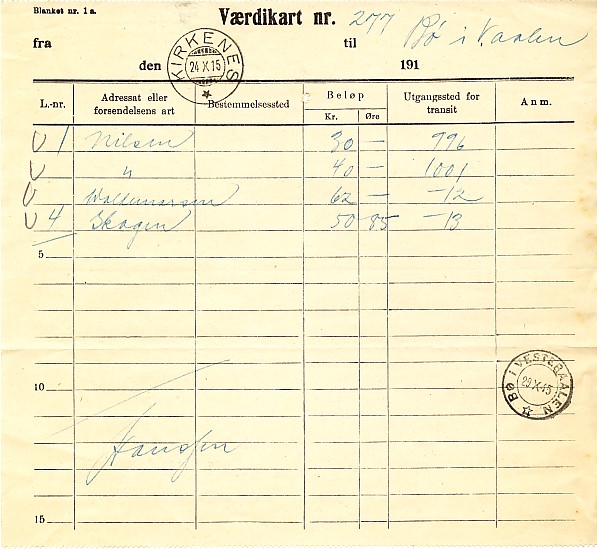 Blanket nr. 1 a.
Værdikart nr. 277
fra til Bø i Vaalen
den 191
KIRKENES
24 X.15
L.-nr. Adressat eller forsendelsens art Bestemmelsessted Beløp Kr. Øre Utgangssted for transit Anm.
1 Nilsen 30 — 996
" 40 — 1001
Waldemarsen 62 — —12
4 Skogen 50 85 —13
5
BØ I VESTERAALEN
29 X.15
10
Hansen
15